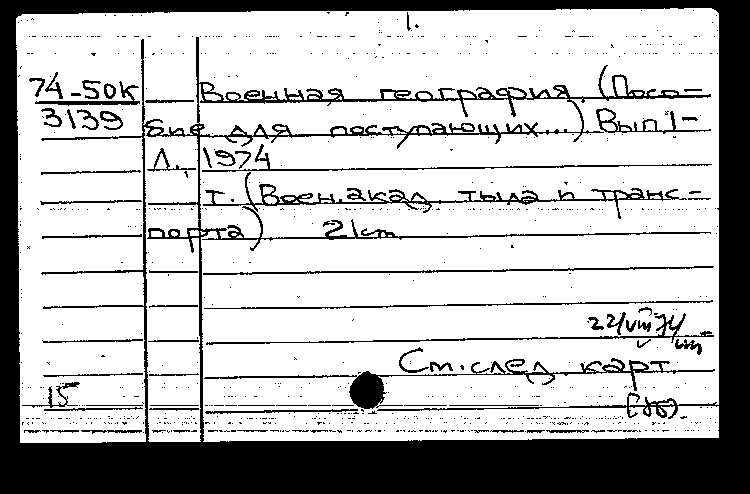 1.
74-50к Военная география. (Посо-
3139 бие для поступающих...) Вып. 1-
Л., 1974
т. (Воен. акад. тыла и транс-
порта) 21 cm
22/VIII 74
См. след. карт.
15